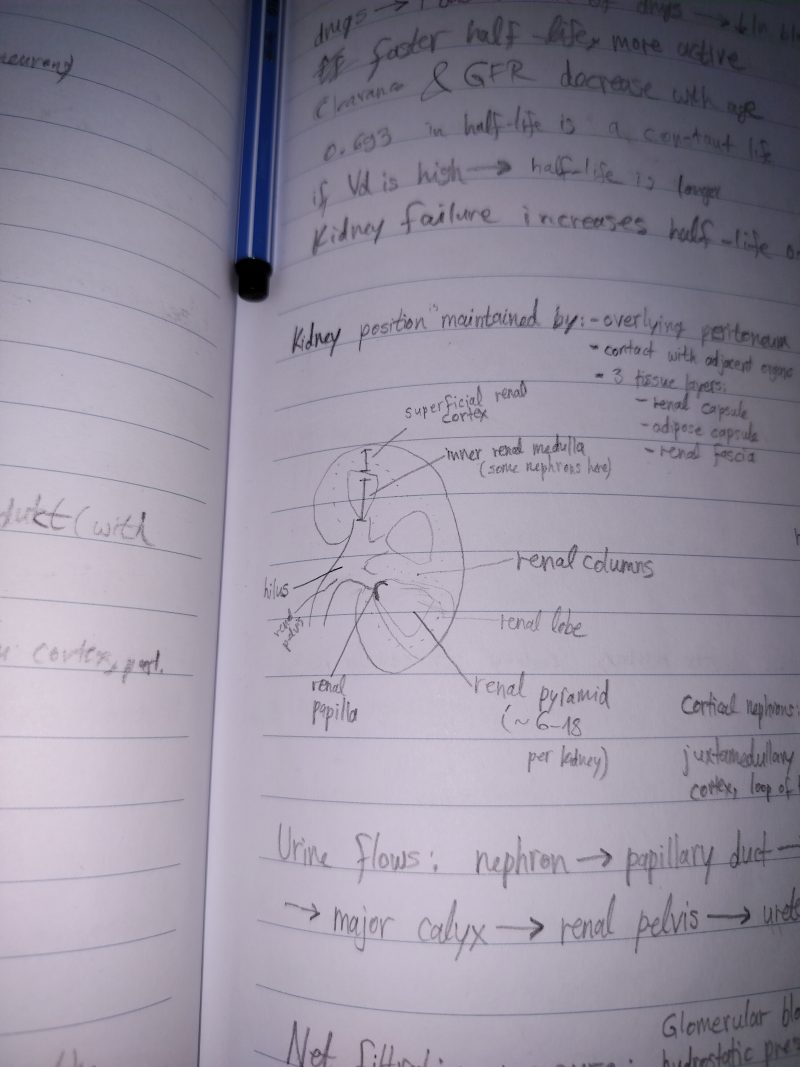 drugs → of drugs →
faster half-life, more active
Clearance & GFR decrease with age
0.693 in half-life is a constant life
if Vd is high → half-life is longer
Kidney failure increases half-life
Kidney position is maintained by: - overlying peritoneum
- contact with adjacent organs
- 3 tissue layers:
- renal capsule
- adipose capsule
- renal fascia
superficial renal
cortex
inner renal medulla
(some nephrons here)
renal columns
hilus
renal
pelvis
renal lobe
renal
papilla
renal pyramid
(~6-18
per kidney)
Cortical nephrons:
juxtamedullary
cortex, loop of
Urine flows: nephron → papillary duct →
→ major calyx → renal pelvis →
Glomerular
Net
hydrostatic
(with
cortex,